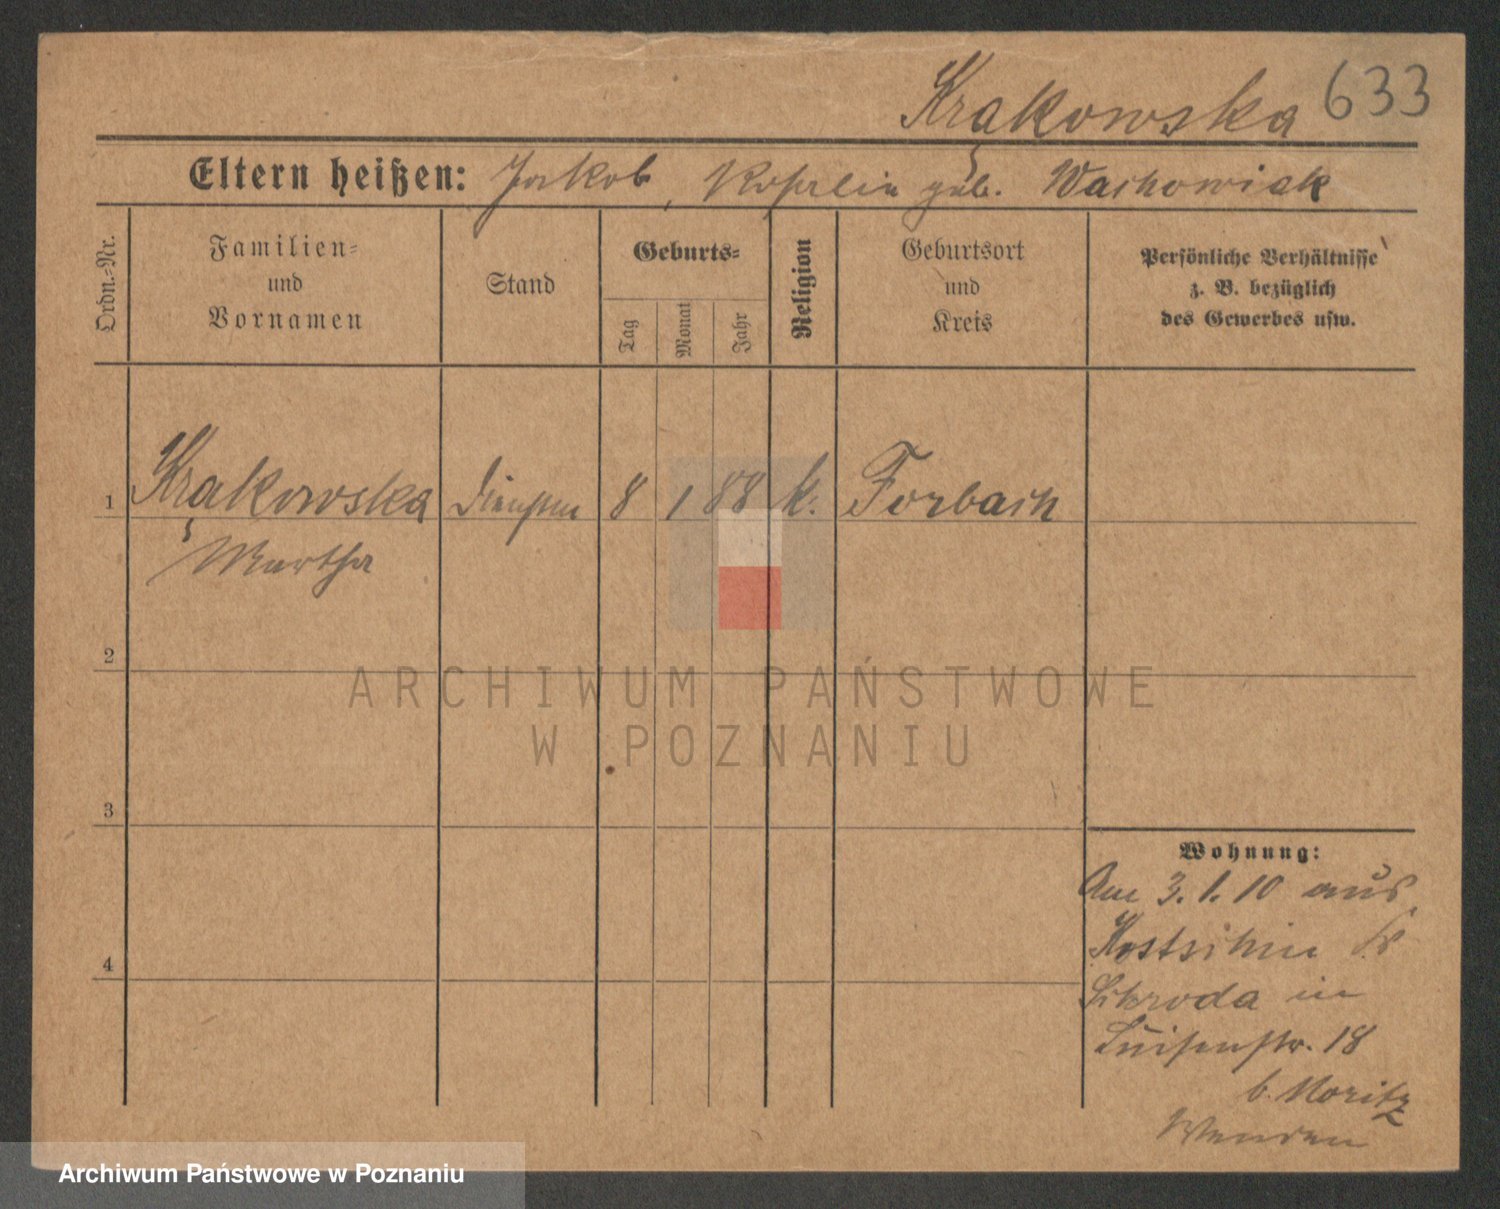 Krakowska 633
Eltern heißen: Jakob, geb. Wachowiak
Ordn.-Nr.
Familien-
und
Vornamen
Stand
Geburts-
Tag
Monat
Jahr
Religion
Geburtsort
und
Kreis
Persönliche Verhältnisse
z. B. bezüglich
des Gewerbes usw.
1 Krakowska 8 1 88 k. Forbach
Martha
2
3
4
ARCHIWUM PAŃSTWOWE
W POZNANIU
Wohnung:
Am 3.1.10 aus
Kostschin Kr.
Schroda in
Luisenstr. 18
b. Moritz
Archiwum Państwowe w Poznaniu